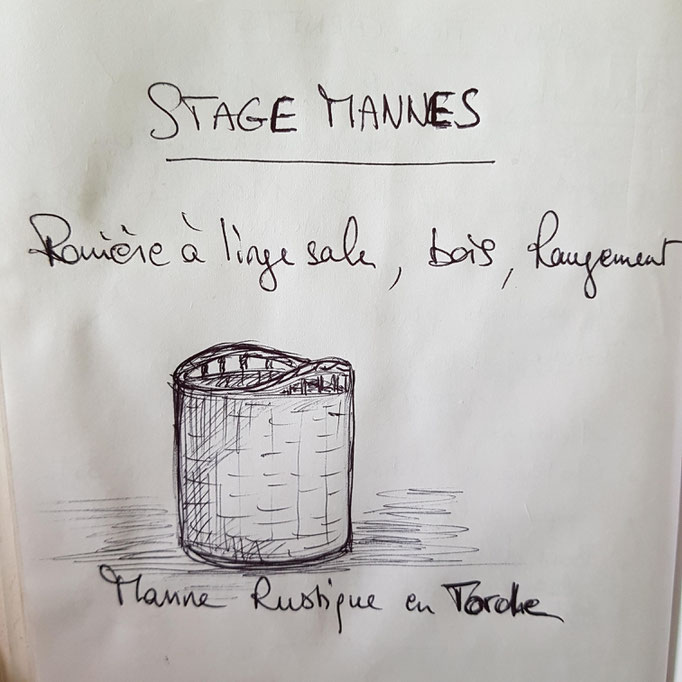 STAGE MANNES
Panière à linge sale, bois, Rangement
Manne Rustique en Torche